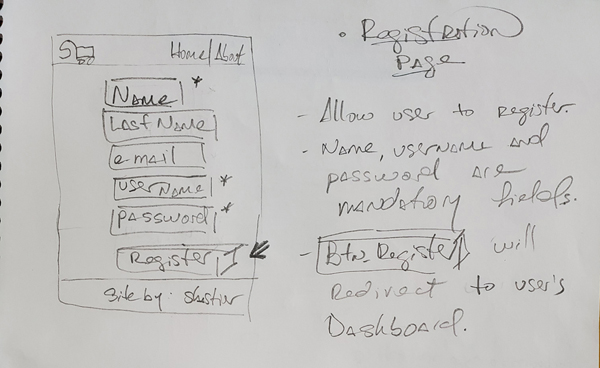 Home/About
Name *
Last Name
e-mail
userName *
password *
Register
Site by:
• Registration
Page
- Allow user to register.
- Name, username and
password are
mandatory fields.
- Btn_Register will
Redirect to user's
Dashboard.